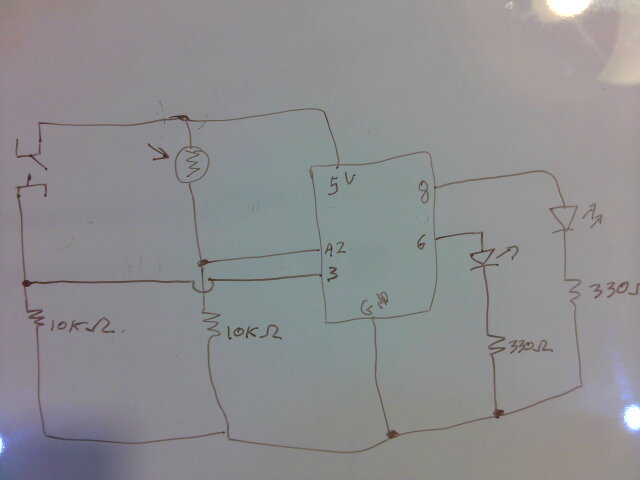 5V
8
A2
6
3
GND
10KΩ.
10KΩ
330Ω
330Ω